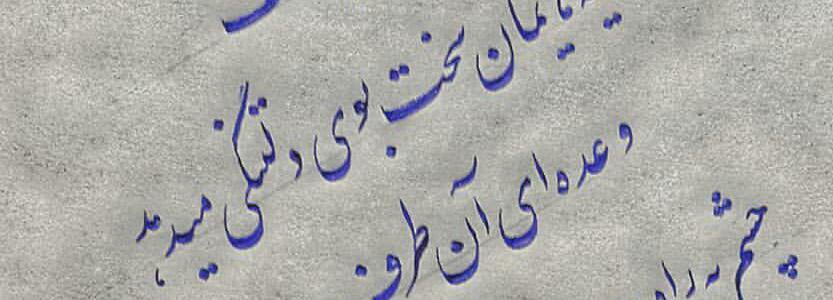 سخت بوی دلتنگی میدهد
وعده ای آن طرف
چشم به راه